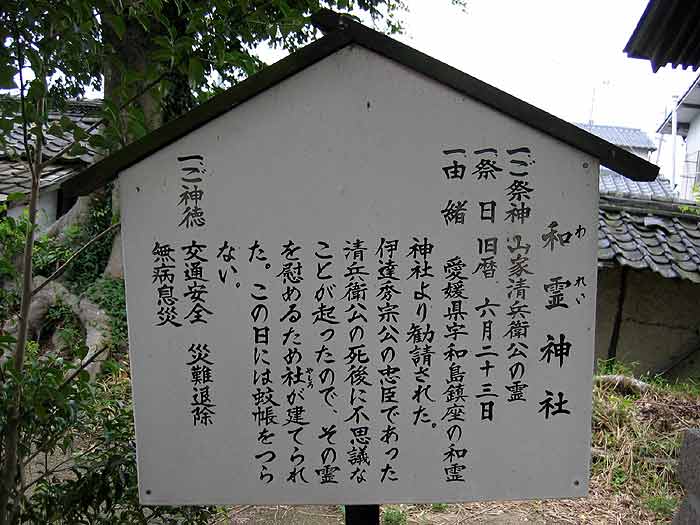 和霊神社
われい
一ご祭神 山家清兵衛公の霊
一祭日 旧暦 六月二十三日
一由緒 愛媛県宇和島鎮座の和霊
神社より勧請された。
伊達秀宗公の忠臣であった
清兵衛公の死後に不思議な
ことが起ったので、その霊
を慰めるため社が建てられ
やしろ
た。この日には蚊帳をつら
ない。
一ご神徳 交通安全 災難退除
無病息災